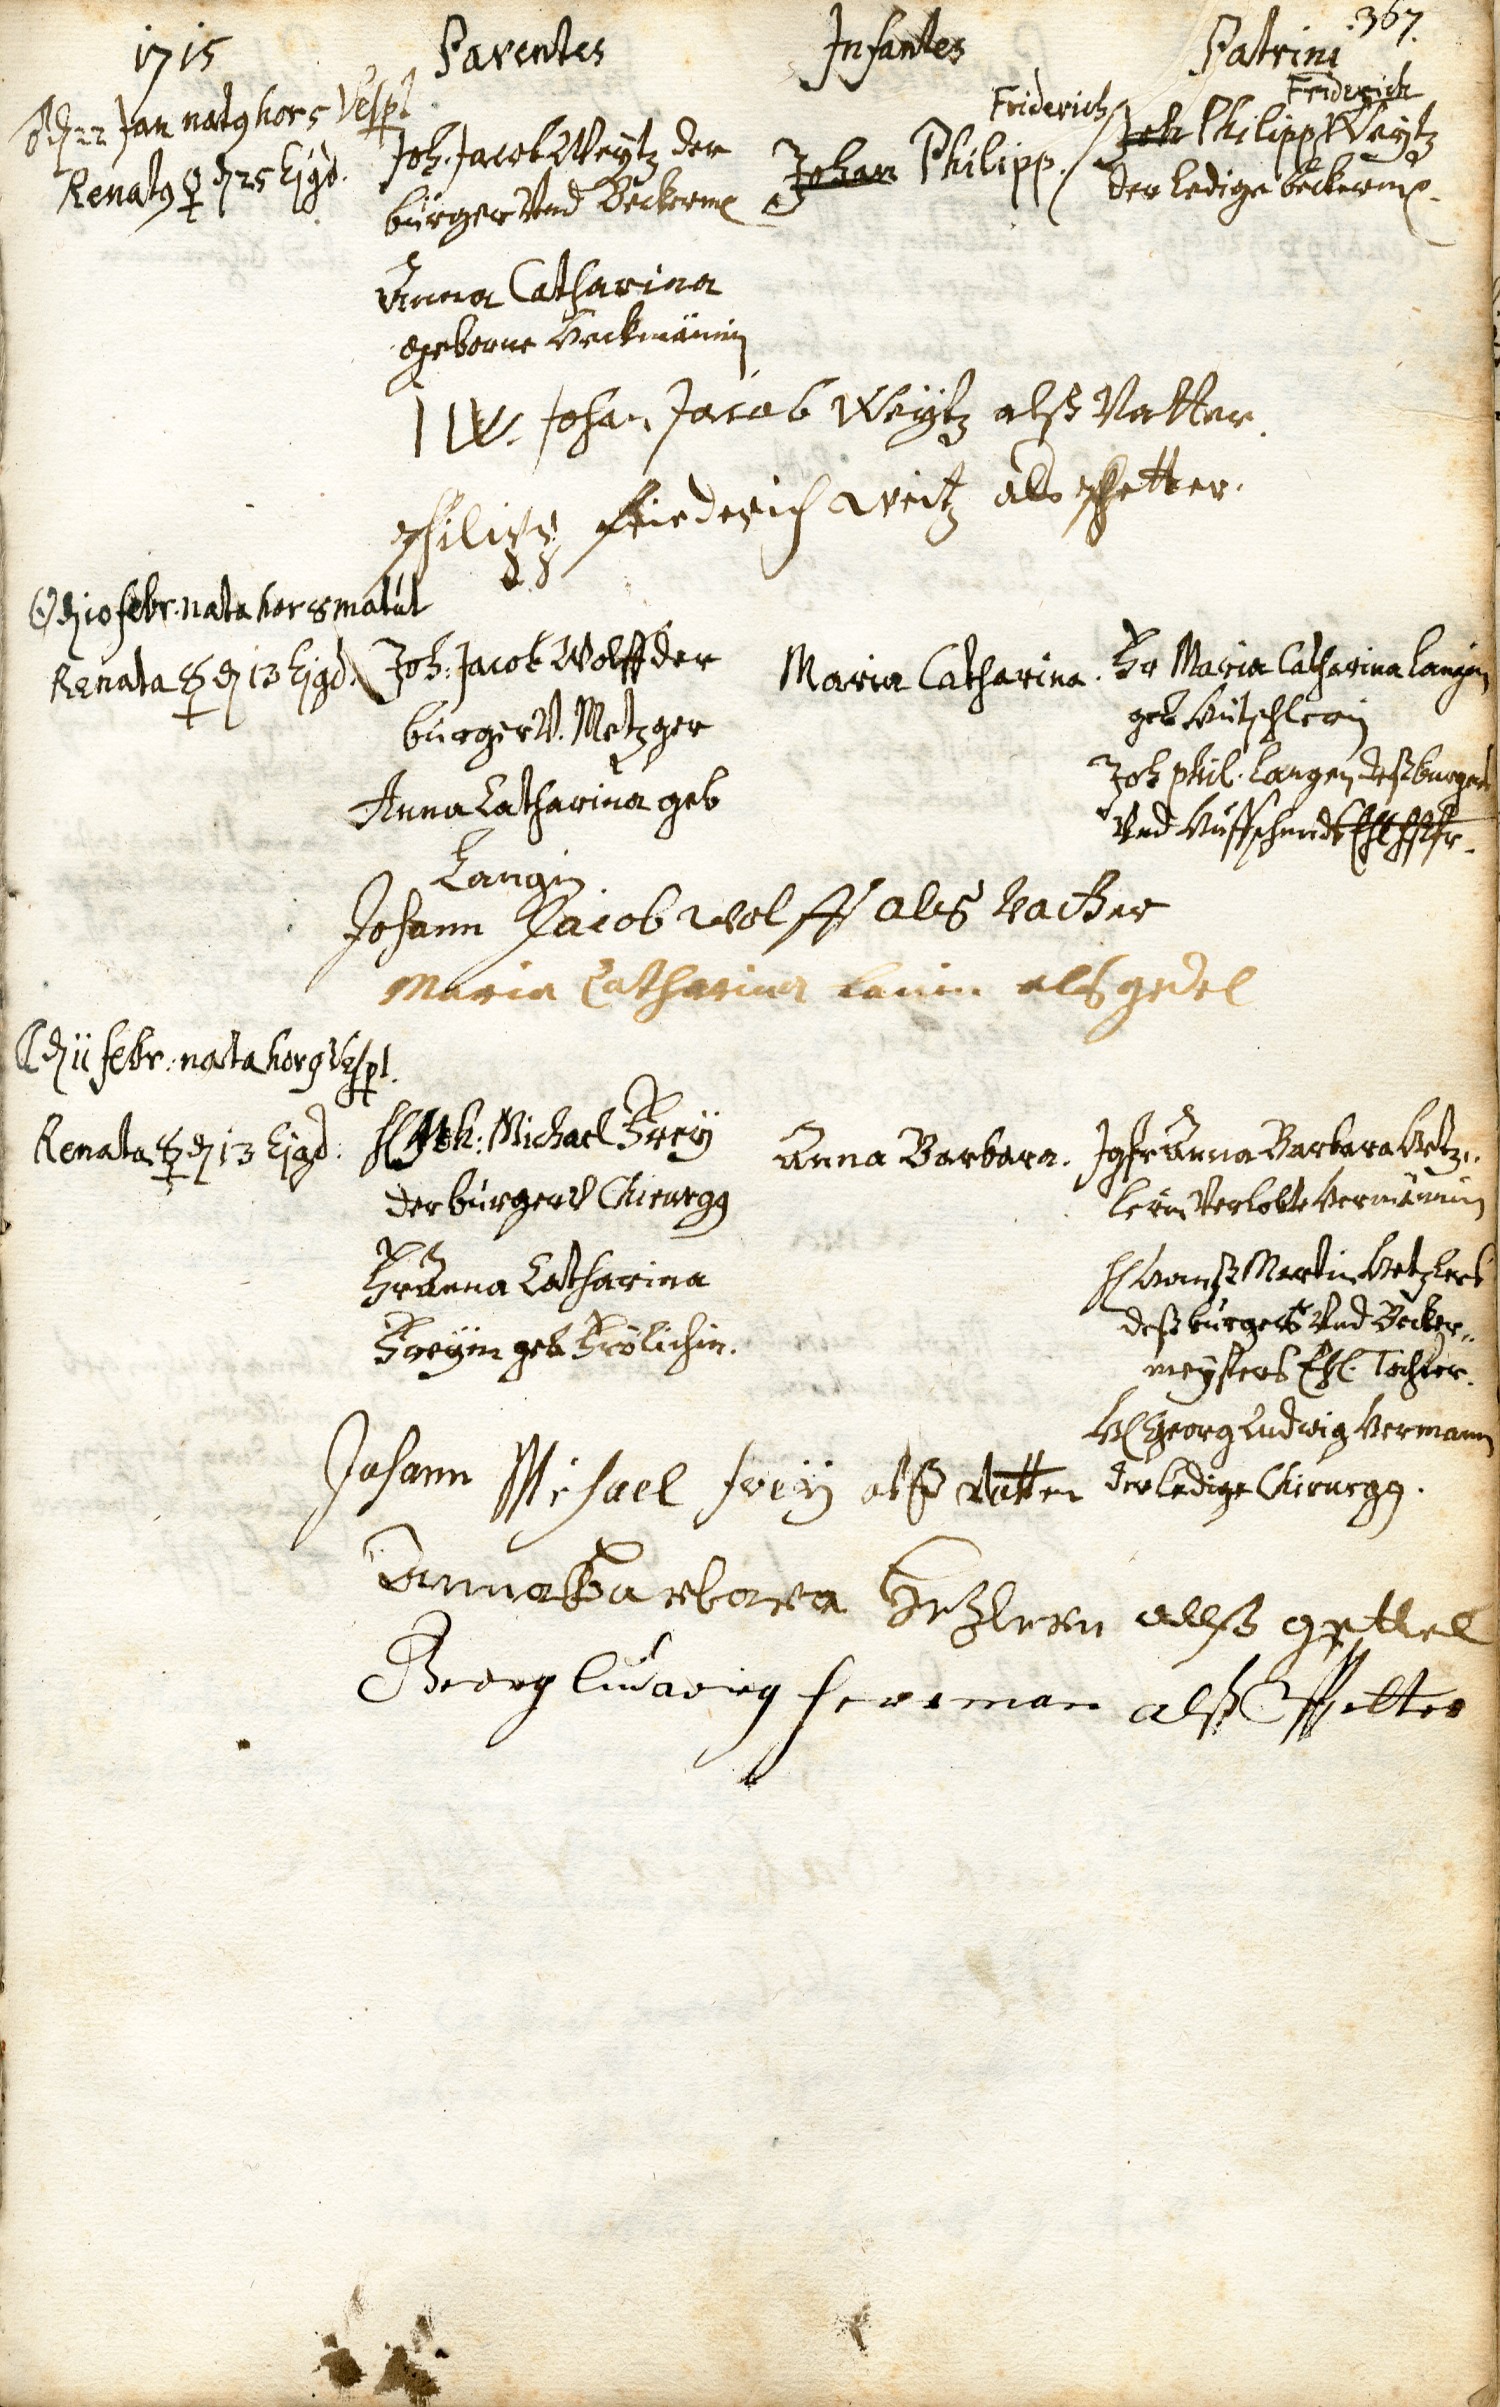 367.
1715 Parentes Infantes Patrini
♂ d 22 Jan natg hor 5 Vespt
Renatg ♀ d 25 Ejgd.
Joh. Jacob Weytz der
bürger Vnd Beckerm
Anna Catharina
geborne Beckmännin
Friderich
Johan Philipp.
Friderich
Joh Philipp Weytz
der ledige beckerm.
IIW. Johan Jacob Weytz alß Vatter.
Philipp Friederich Weitz als Pfetter.
☉ d 10 febr. nata hor 8 matut
Renata ☿ d 13 Ejgd.
Joh. Jacob Wolff der
bürger V. Metzger
Anna Catharina geb
Langin
Maria Catharina.
Fr Maria Catharina Langin
geb
Joh phil. Langen deß burgers
Vnd
Johann Jacob Wolff als Vatter
Maria Catharina als gedel
☾ d 11 febr. nata hor 9 Vespt.
Renata ☿ d 13 Ejgd.
H Joh. Michael Frey
der bürger V Chirurgg
Fr Anna Catharina
Freyin geb Frölichin.
Anna Barbara.
Jgfr Anna Barbara Hetz„
lerin Verlobte Hermännin
H Hanß Martin Hetzlers
deß burgers Vnd Becker„
meysters Ehl. Tochter.
H Georg Ludwig Hermann
der ledige Chirurgg.
Johann Michael Frey alß Vatter
Anna Barbara Hetzlerin allß gettel
Georg Ludwig Herman alß Pfetter